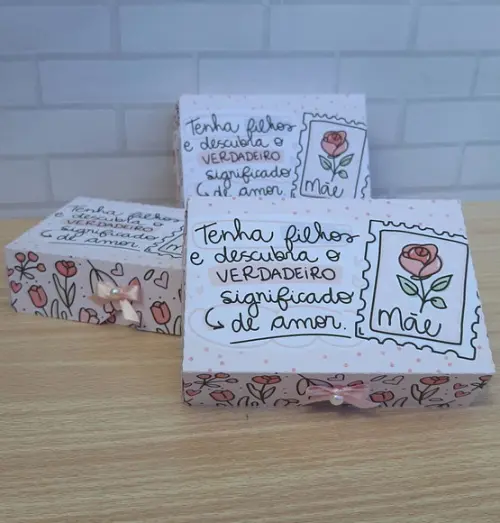 Tenha filhos
e descubra o
VERDADEIRO
significado
de amor.
Mãe
Tenha filhos
e descubra o
VERDADEIRO
significado
de amor.
Tenha filhos
e descubra o
VERDADEIRO
significado
de amor.
Mãe